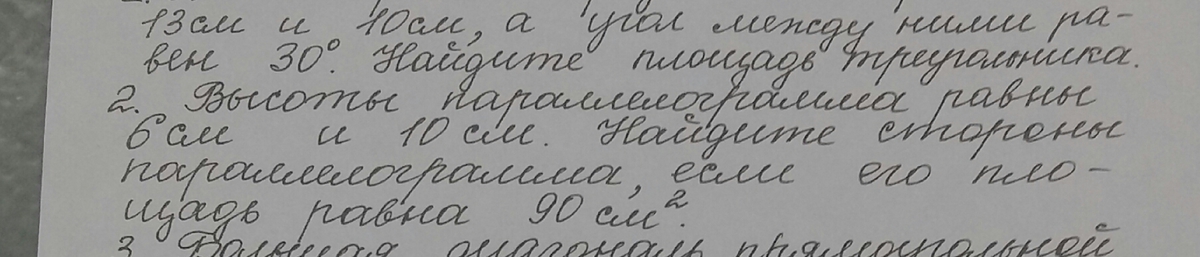 13см и 10см, а угол между ними ра-
вен 30°. Найдите площадь треугольника.
2. Высоты параллелограмма равны
6см и 10 см. Найдите стороны
параллелограмма, если его пло-
щадь равна 90 см².
3 Большая диагональ прямоугольной